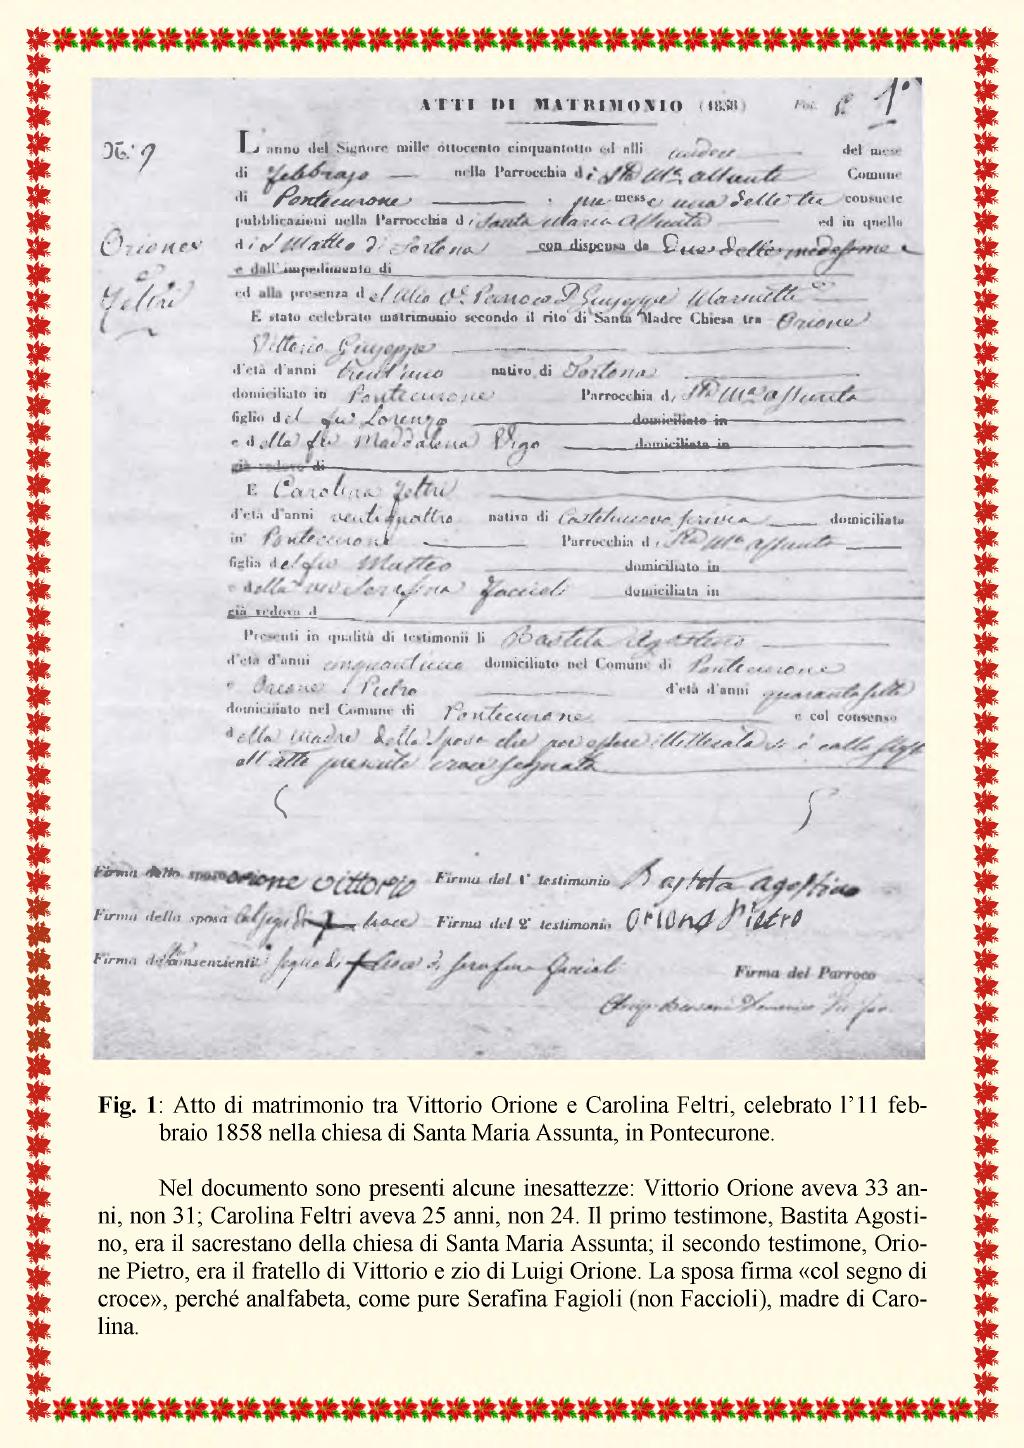 ATTI DI MATRIMONIO (1858) Fol. 1°
N.° 9
L'anno del Signore mille ottocento cinquantotto ed alli undeci del mese
di Febbrajo nella Parrocchia di Sta Ma assunta Comune
di Pontecurone, messe una delle tre consuete
pubblicazioni nella Parrocchia di Santa Maria Assunta ed in quella
Orione
e
Feltri
di S Matteo di Tortona con dispensa da Due delle medesime
e dall'impedimento di
ed alla presenza del Parroco D Giuseppe
È stato celebrato matrimonio secondo il rito di Santa Madre Chiesa tra Orione
Vittorio Giuseppe
d'età d'anni trent'uno nativo di Tortona
domiciliato in Pontecurone Parrocchia di Sta Ma assunta
figlio del fu Lorenzo domiciliato in
e della fu Maddalena Vigo domiciliata in
già vedovo di
E Carolina Feltri
d'età d'anni ventiquattro nativa di Castelnuovo Scrivia domiciliata
in Pontecurone Parrocchia di Sta Ma assunta
figlia del fu Matteo domiciliato in
e della Serafina Faccioli domiciliata in
già vedova d
Presenti in qualità di testimonii li Bastita Agostino
d'età d'anni domiciliato nel Comune di Pontecurone
e Orione Pietro d'età d'anni quarantasette
domiciliato nel Comune di Pontecurone e col consenso
della madre della Sposa che per essere illetterata si è
all'atto presente croce segnata
Firma dello sposo orione vittorio Firma del 1° testimonio Bastita agostino
Firma della sposa Col segno di croce Firma del 2° testimonio Orione Pietro
Firma segno di croce di Serafina Faccioli Firma del Parroco
Fig. 1: Atto di matrimonio tra Vittorio Orione e Carolina Feltri, celebrato l'11 feb-
braio 1858 nella chiesa di Santa Maria Assunta, in Pontecurone.
Nel documento sono presenti alcune inesattezze: Vittorio Orione aveva 33 an-
ni, non 31; Carolina Feltri aveva 25 anni, non 24. Il primo testimone, Bastita Agosti-
no, era il sacrestano della chiesa di Santa Maria Assunta; il secondo testimone, Orio-
ne Pietro, era il fratello di Vittorio e zio di Luigi Orione. La sposa firma «col segno di
croce», perché analfabeta, come pure Serafina Fagioli (non Faccioli), madre di Caro-
lina.